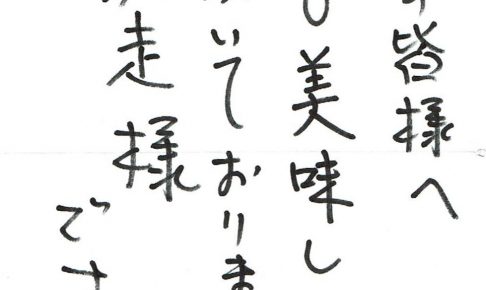 皆様へ
美味し
いております
走様
でき